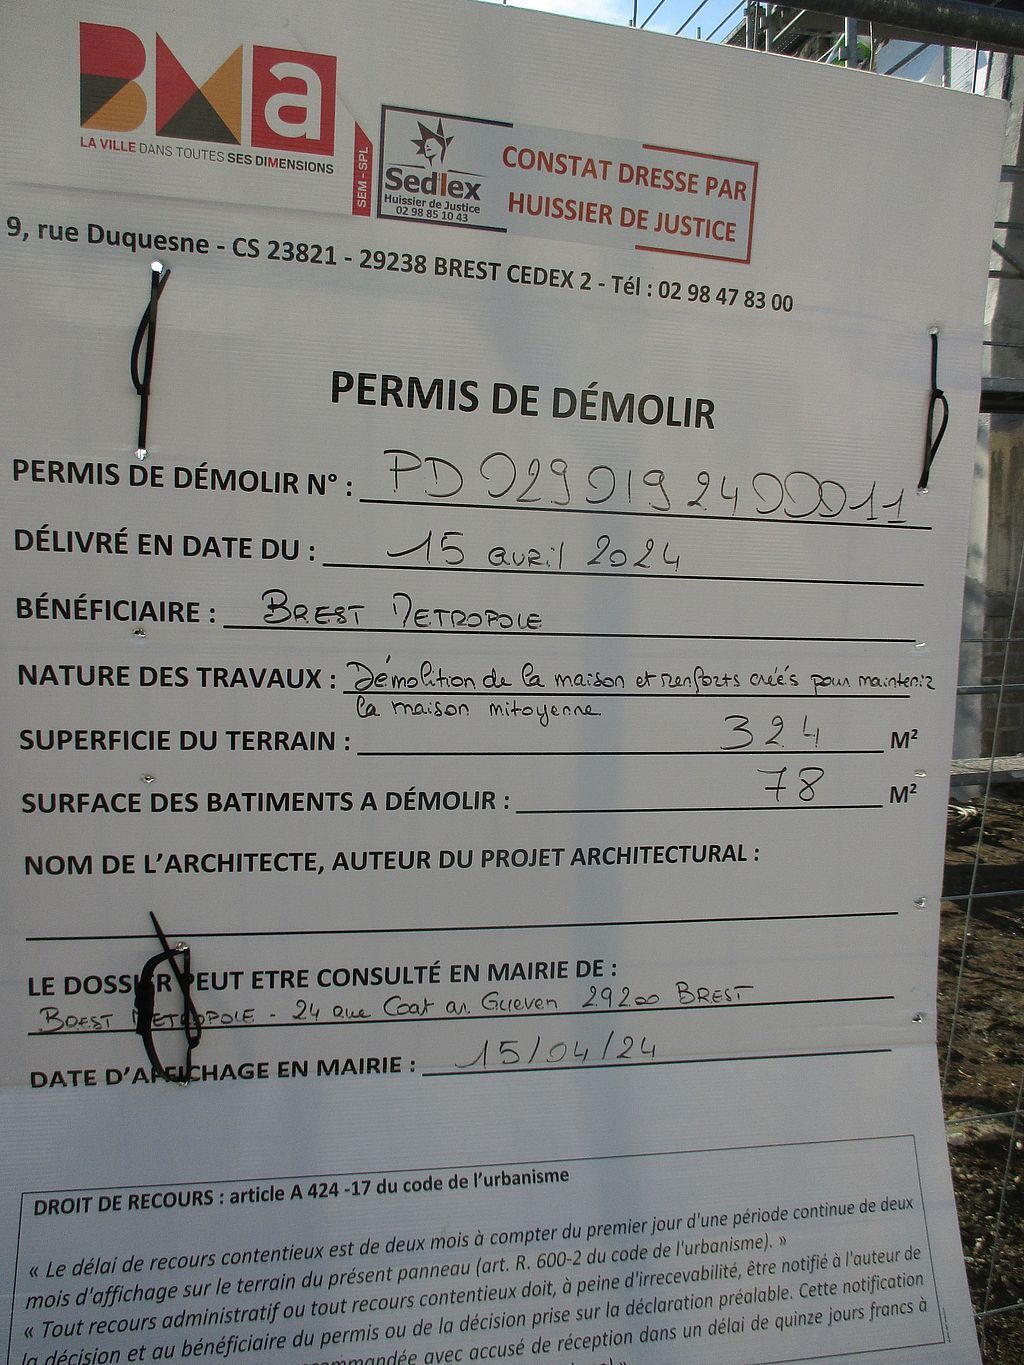 BMa
LA VILLE DANS TOUTES SES DIMENSIONS
SEM - SPL
Sedlex
Huissier de Justice
02 98 85 10 43
CONSTAT DRESSE PAR
HUISSIER DE JUSTICE
9, rue Duquesne - CS 23821 - 29238 BREST CEDEX 2 - Tél : 02 98 47 83 00
PERMIS DE DÉMOLIR
PERMIS DE DÉMOLIR N° : PD 029 019 24 00011
DÉLIVRÉ EN DATE DU : 15 avril 2024
BÉNÉFICIAIRE : BREST METROPOLE
NATURE DES TRAVAUX : Démolition de la maison et renforts créés pour maintenir
la maison mitoyenne.
SUPERFICIE DU TERRAIN : 324 M²
SURFACE DES BATIMENTS A DÉMOLIR : 78 M²
NOM DE L'ARCHITECTE, AUTEUR DU PROJET ARCHITECTURAL :
LE DOSSIER PEUT ETRE CONSULTÉ EN MAIRIE DE :
BREST METROPOLE - 24 rue Coat ar Gueven 29200 BREST
DATE D'AFFICHAGE EN MAIRIE : 15/04/24
DROIT DE RECOURS : article A 424 -17 du code de l'urbanisme
« Le délai de recours contentieux est de deux mois à compter du premier jour d'une période continue de deux
mois d'affichage sur le terrain du présent panneau (art. R. 600-2 du code de l'urbanisme). »
« Tout recours administratif ou tout recours contentieux doit, à peine d'irrecevabilité, être notifié à l'auteur de
la décision et au bénéficiaire du permis ou de la décision prise sur la déclaration préalable. Cette notification
avec accusé de réception dans un délai de quinze jours francs à